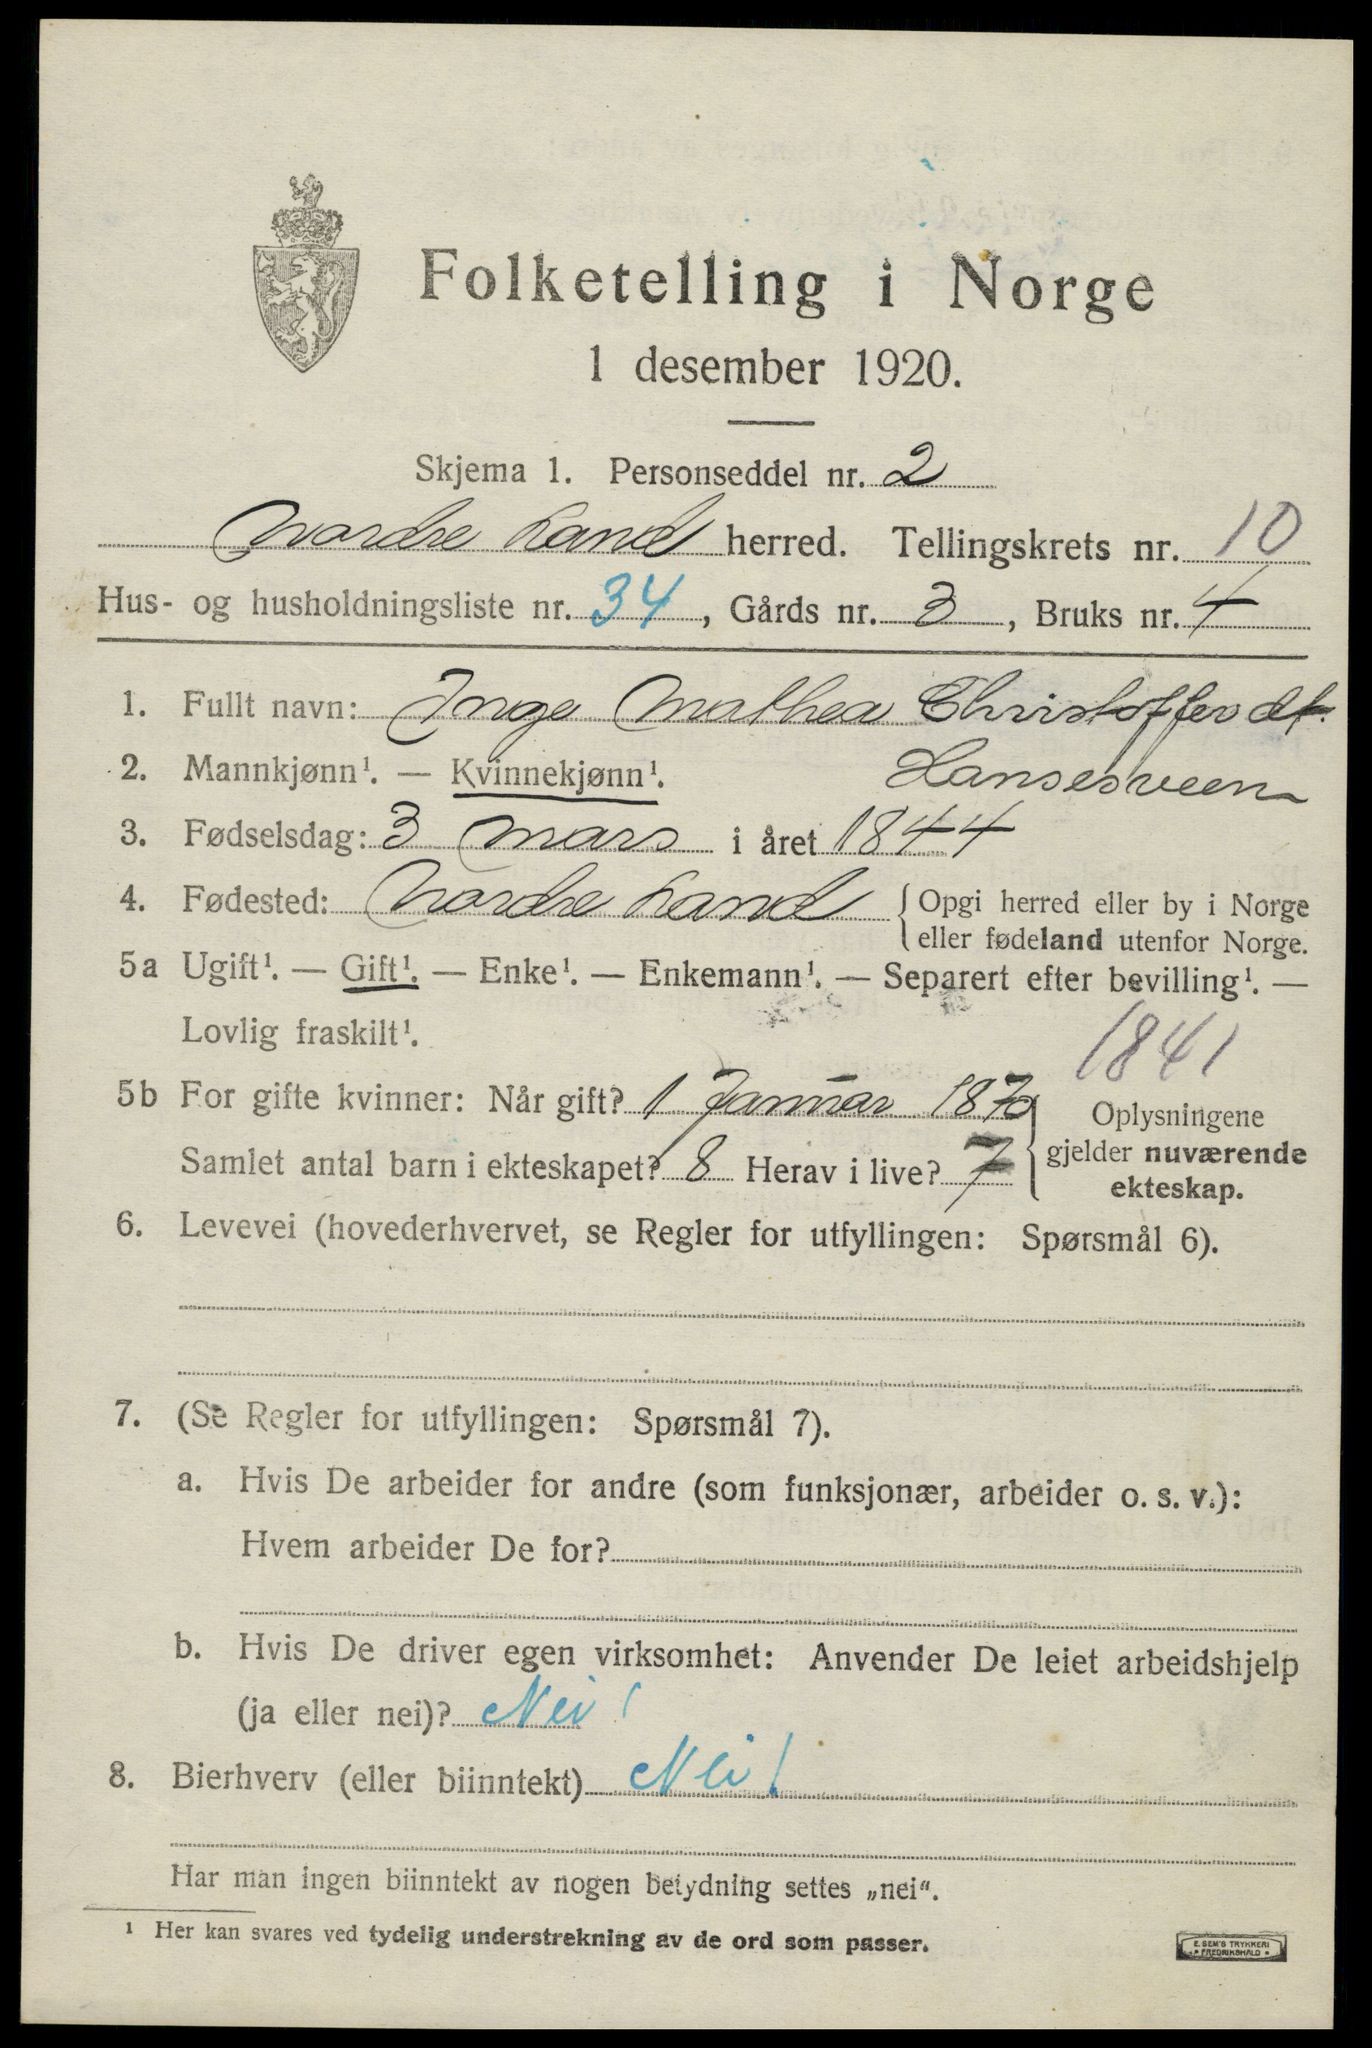 Folketelling i Norge
1 desember 1920.
Skjema 1. Personseddel nr. 2
Nordre Land herred. Tellingskrets nr. 10
Hus- og husholdningsliste nr. 34, Gårds nr. 3, Bruks nr. 4
1. Fullt navn: Inge Mathea Christoffersdt.
Hansesveen
2. Mannkjønn¹. — Kvinnekjønn¹.
3. Fødselsdag: 3 mars i året 1844
4. Fødested: Nordre Land { Opgi herred eller by i Norge
eller fødeland utenfor Norge.
5a Ugift¹. — Gift¹. — Enke¹. — Enkemann¹. — Separert efter bevilling¹. —
Lovlig fraskilt¹.
1841
5b For gifte kvinner: Når gift? 1 Januar 1870
Samlet antal barn i ekteskapet? 8 Herav i live? 7
} Oplysningene
gjelder nuværende
ekteskap.
6. Levevei (hovederhvervet, se Regler for utfyllingen: Spørsmål 6).
7. (Se Regler for utfyllingen: Spørsmål 7).
a. Hvis De arbeider for andre (som funksjonær, arbeider o. s. v.):
Hvem arbeider De for?
b. Hvis De driver egen virksomhet: Anvender De leiet arbeidshjelp
(ja eller nei)? Nei!
8. Bierhverv (eller biinntekt) Nei!
Har man ingen biinntekt av nogen betydning settes „nei“.
¹ Her kan svares ved tydelig understrekning av de ord som passer.
E. SEM'S TRYKKERI
FREDRIKSHALD